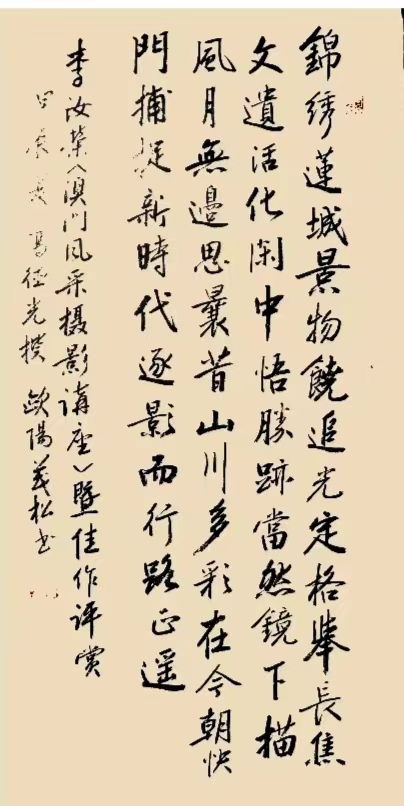 錦绣蓮城景物饒追光定格舉長焦
文遺活化闲中悟勝跡當然鏡下描
風月無邊思曩昔山川多彩在今朝快
門捕捉新時代逐影而行路正遥
李汝榮《澳门风采摄影講座》暨佳作评赏
甲辰夏冯径光撰 歐陽美松书